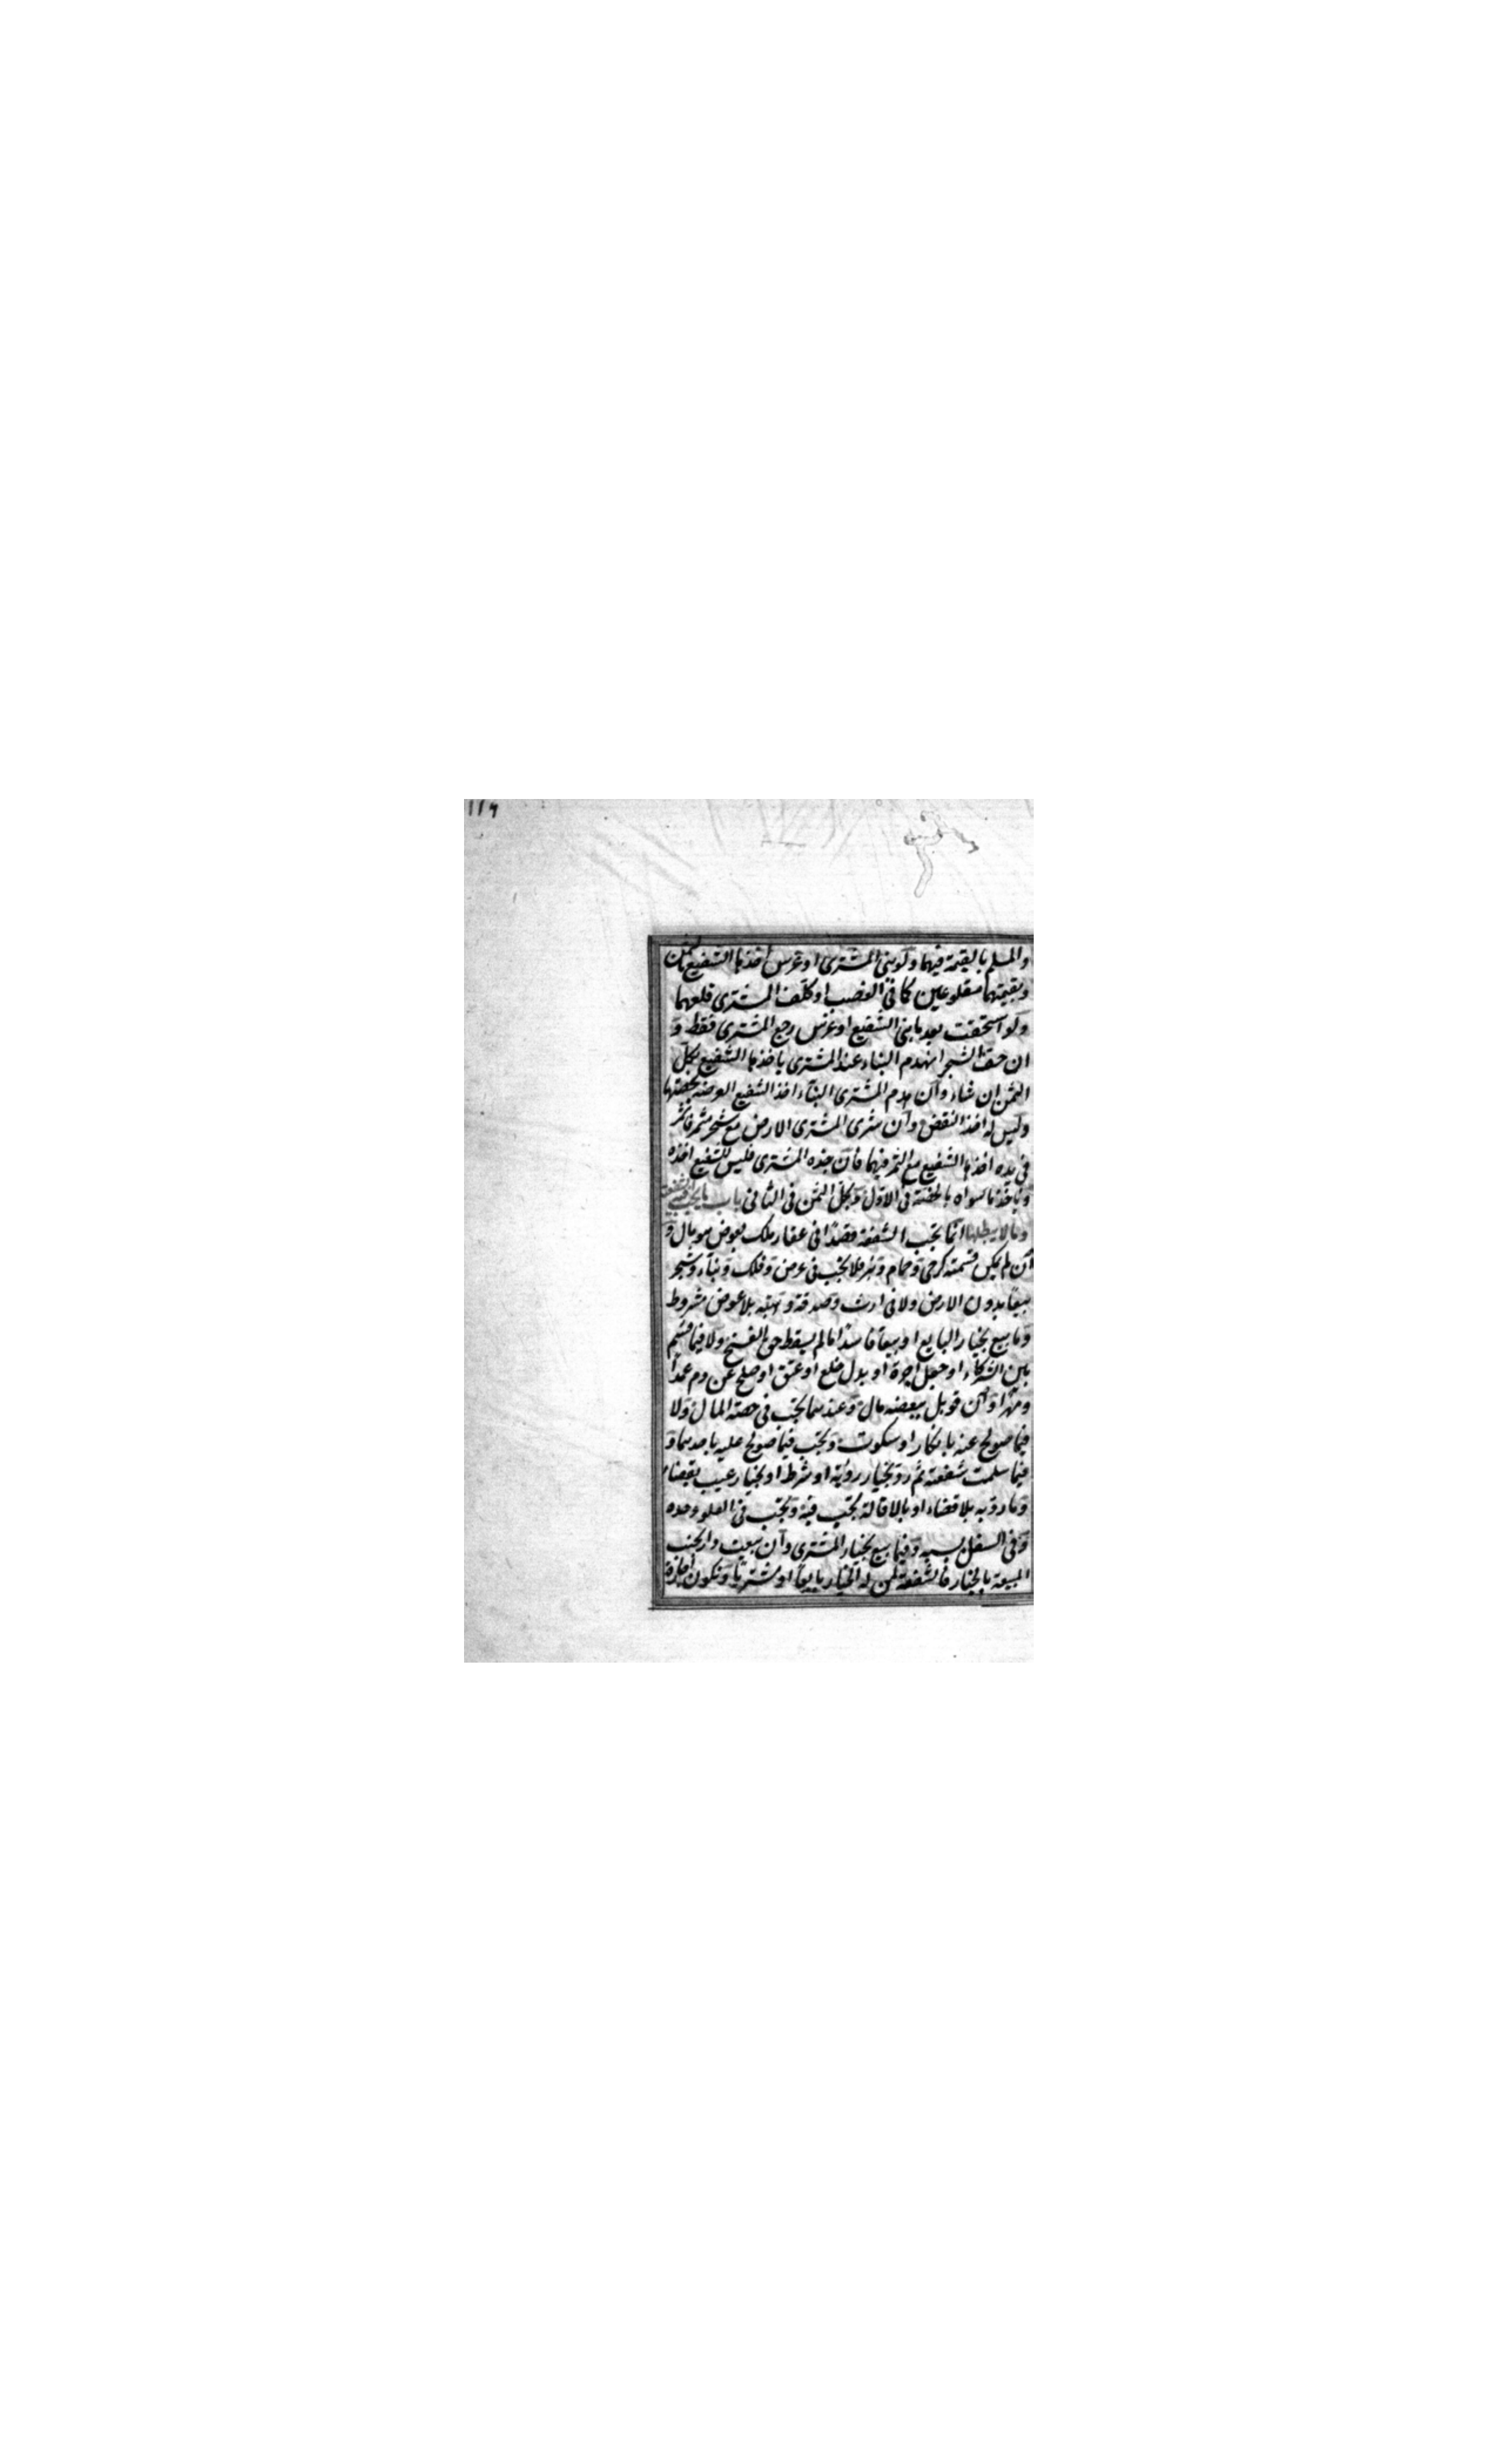 ١١٦
والمسلم بالقيمة فيهما ولو بنى المشترى او غرس اخذها الشفيع بالثمن
وبقيمتهما مقلوعين كما فى الغصب او كلف المشترى قلعهما
ولو استحقت بعد ما بنى الشفيع او غرس رجع المشترى فقط و
ان جف الشجر انهدم البناء عند المشترى ياخذها الشفيع بكل
الثمن ان شاء وان هدم المشترى البناء اخذ الشفيع العرصة بحصتها
وليس له اخذ النقض وان شرى المشترى الارض مع شجر مثمر فاثمر
فى يده اخذها الشفيع مع الثمر فيهما فان جذه المشترى فليس للشفيع اخذه
وياخذ ما سواه بالحصة فى الاول وبكل الثمن فى الثانى باب ما يجب فيه الشفعة
وما لا يبطلها انما تجب الشفعة قصدا فى عقار ملك بعوض هو مال و
ان لم يكن قسمته كرحى وحمام وبئر فلا تجب فى عرض وفلك وبناء وشجر
بيعا بدون الارض ولا فى ارث وصدقة وهبة بلا عوض مشروط
وما بيع بخيار البايع او بيعا فاسدا ما لم يسقط حق الفسخ ولا فيما قسم
بين الشركاء او جعل اجرة او بدل خلع او عتق او صلح عن دم عمدا
ومهرا وان قوبل ببعضه مال وعندهما تجب فى حصة المال ولا
فيما صولح عنه بانكار او سكوت وتجب فيما صولح عليه باحدهما و
فيما سلمت شفعته ثم رد بخيار رؤية او شرط او بخيار عيب بقضاء
وما رد به بلا قضاء او بالاقالة تجب فيه وتجب فى العلو وحده
وفى السفل بسببه وفيما بيع بخيار المشترى وان بيعت دار بجنب
المبيعة بالخيار فالشفعة لمن له الخيار بايعا او مشتريا وتكون اجازة